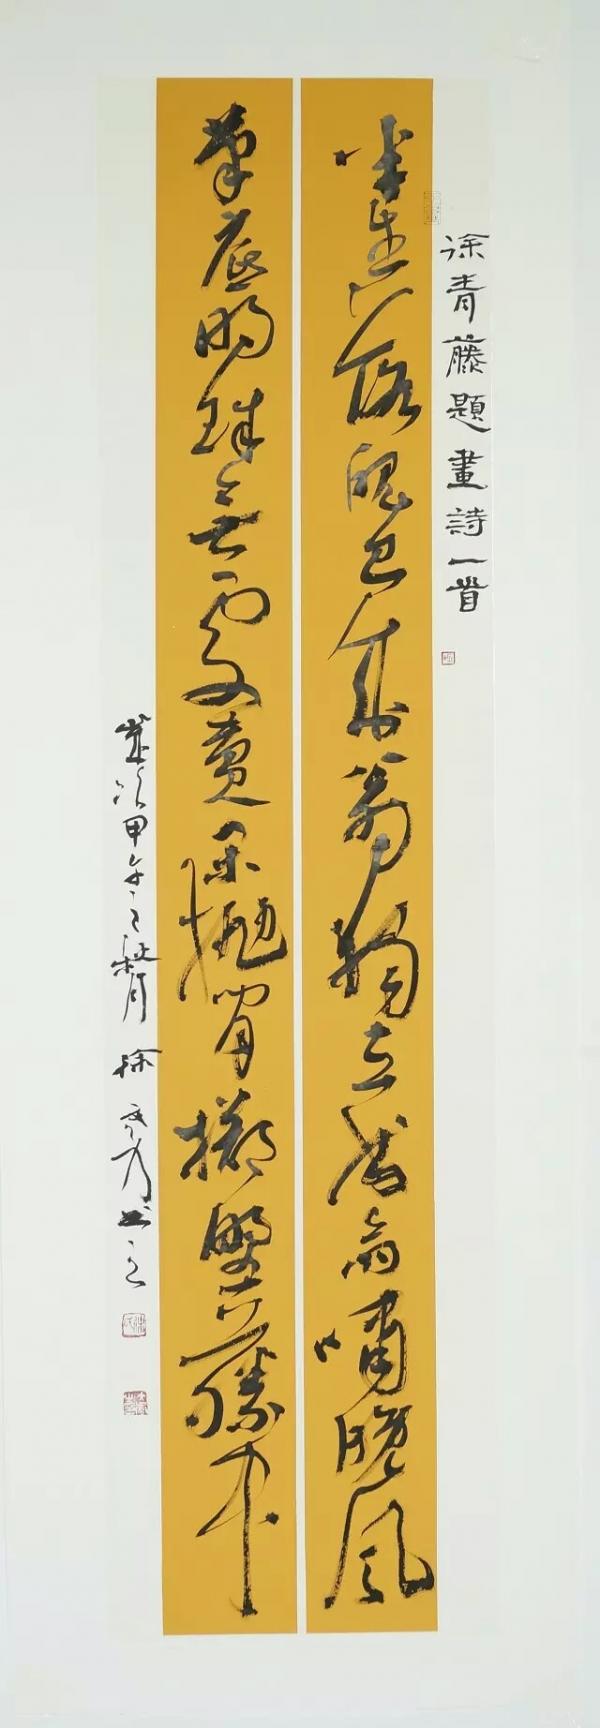 徐青藤題畫詩一首
半生落魄已成翁獨立書齋嘯晚風
筆底明珠無處賣閑拋閑擲野藤中
歲次甲午之秋月 徐 書之